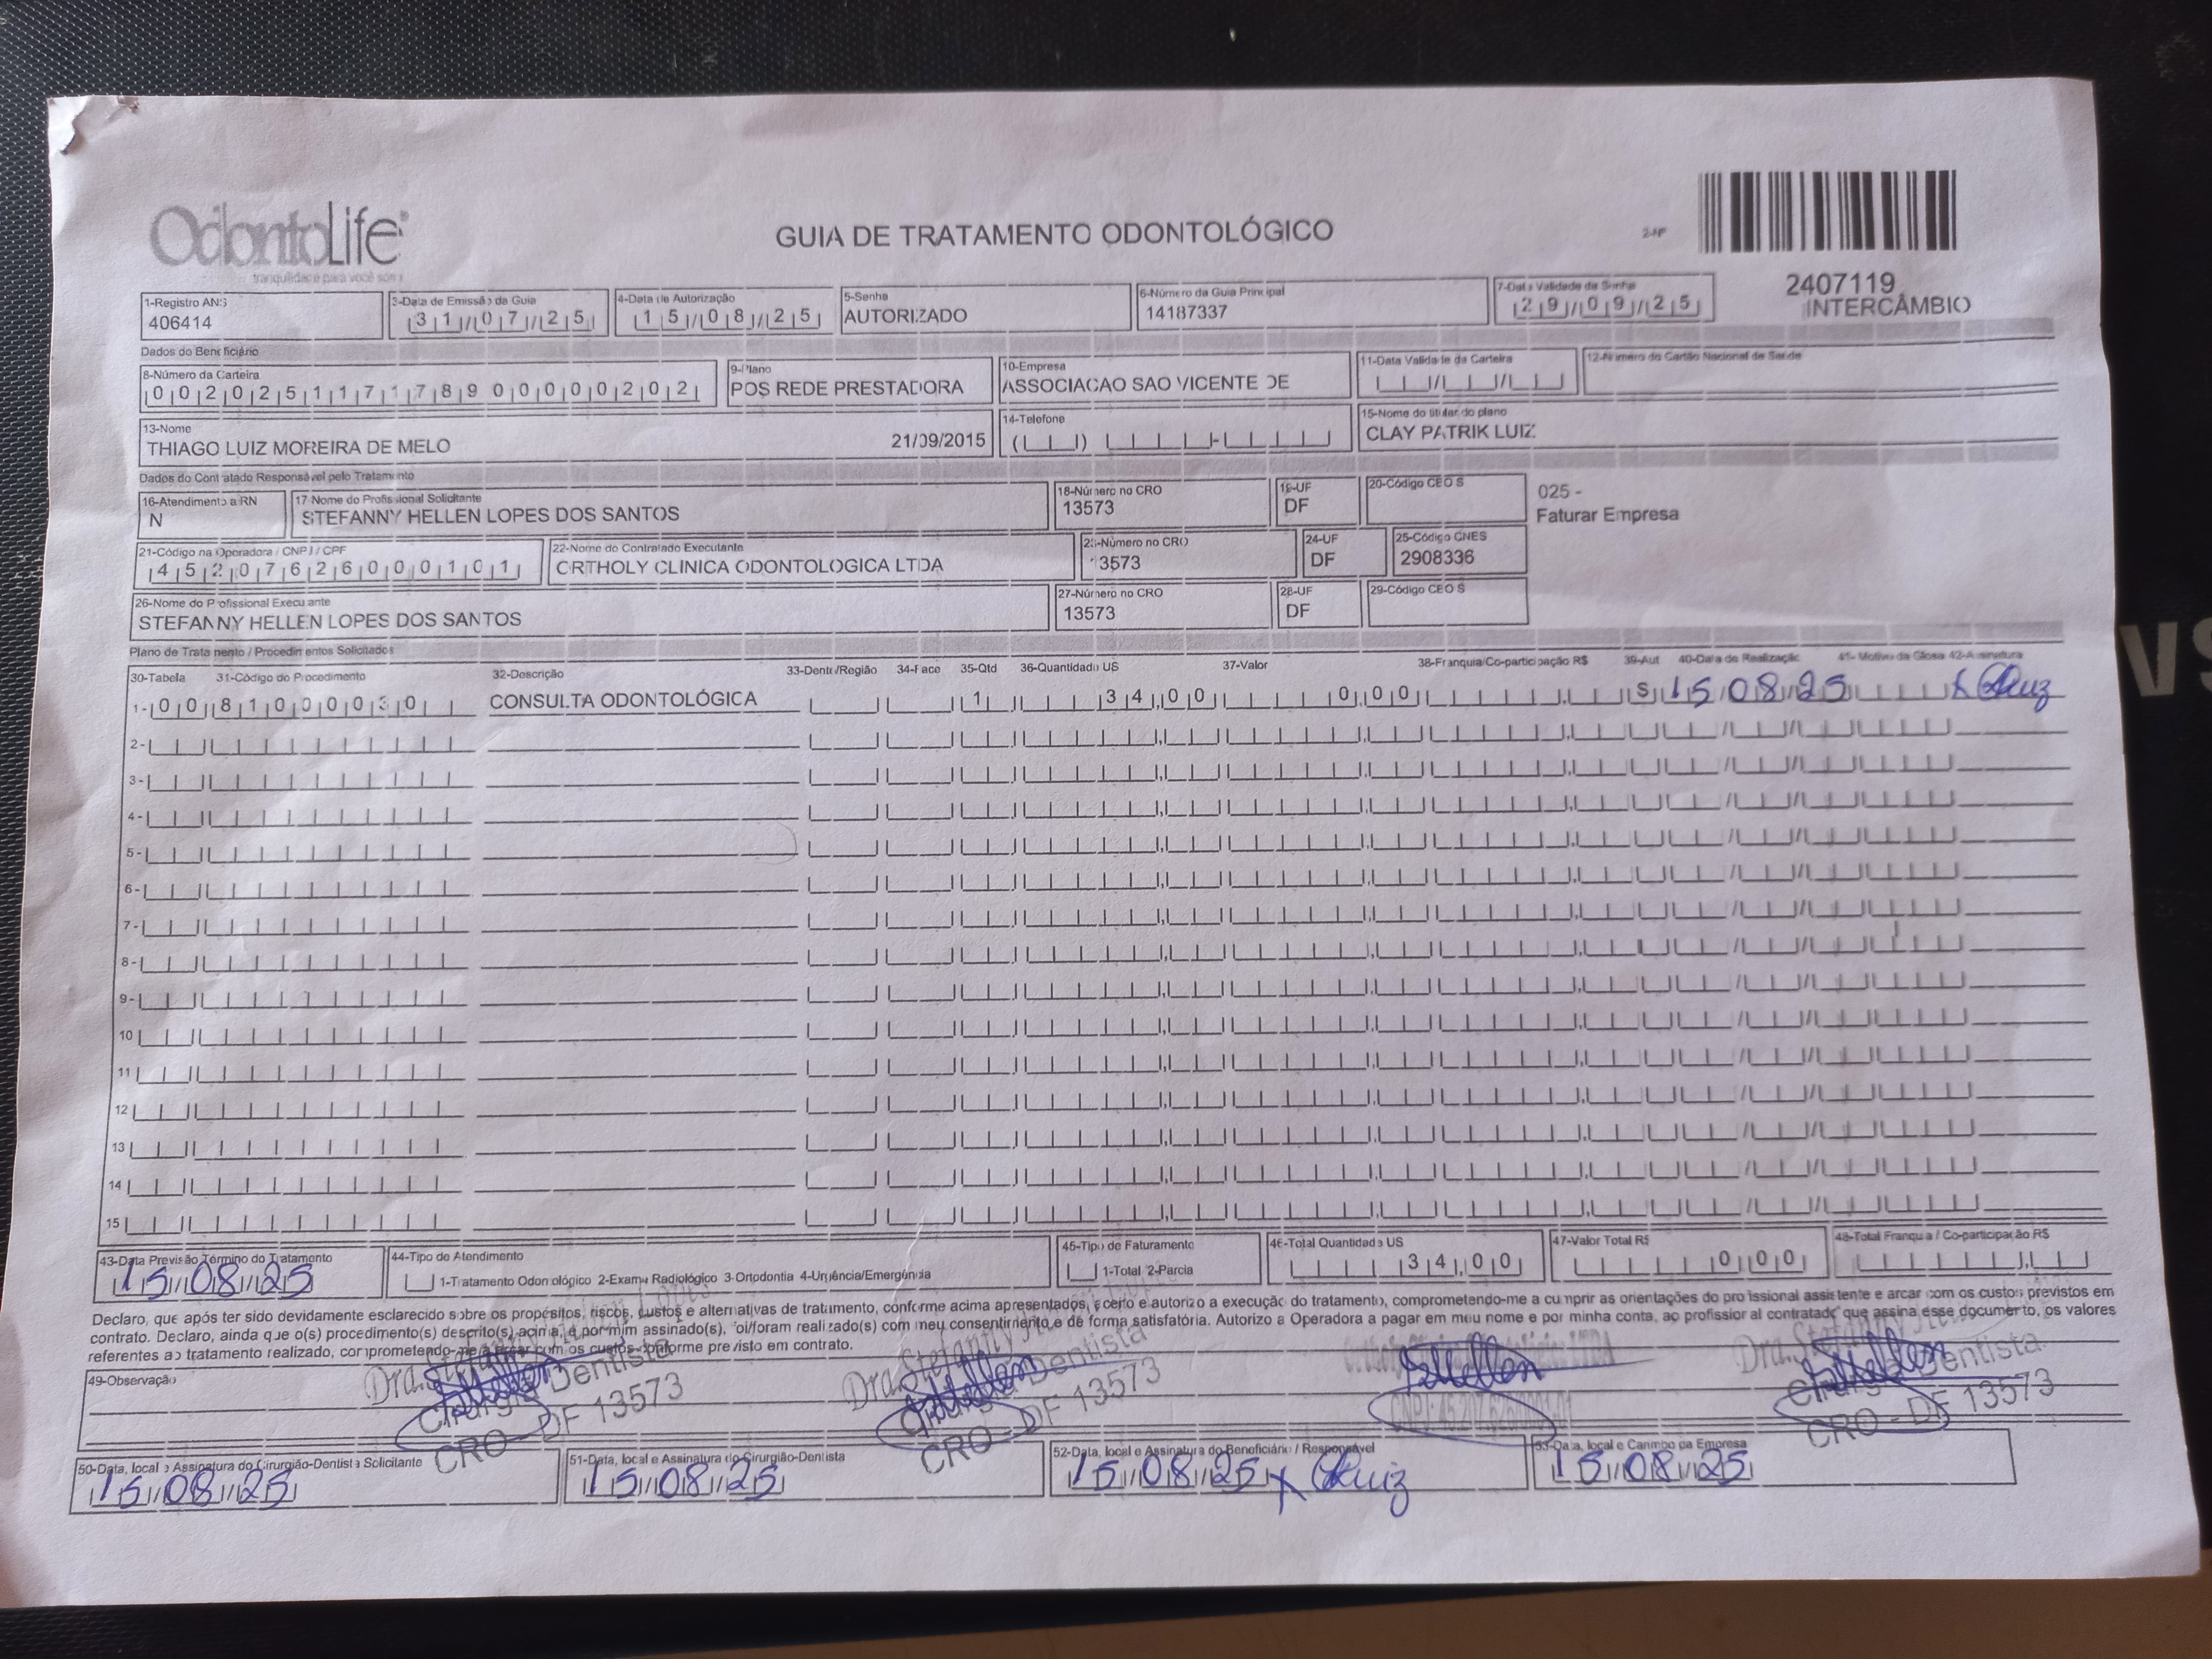 OdontoLife
tranquilidade para você sorrir
GUIA DE TRATAMENTO ODONTOLÓGICO
2-Nº
2407119
INTERCÂMBIO
1-Registro ANS
406414
3-Data de Emissão da Guia
31/07/25
4-Data de Autorização
15/08/25
5-Senha
AUTORIZADO
6-Número da Guia Principal
14187337
7-Data Validade da Senha
29/09/25
Dados do Beneficiário
8-Número da Carteira
002025117178900000202
9-Plano
POS REDE PRESTADORA
10-Empresa
ASSOCIACAO SAO VICENTE DE
11-Data Validade da Carteira
12-Número do Cartão Nacional de Saúde
13-Nome
THIAGO LUIZ MOREIRA DE MELO 21/09/2015
14-Telefone
15-Nome do titular do plano
CLAY PATRIK LUIZ
Dados do Contratado Responsável pelo Tratamento
16-Atendimento a RN
N
17-Nome do Profissional Solicitante
STEFANNY HELLEN LOPES DOS SANTOS
18-Número no CRO
13573
19-UF
DF
20-Código CEO S
025 -
Faturar Empresa
21-Código na Operadora / CNPJ / CPF
45207626000101
22-Nome do Contratado Executante
ORTHOLY CLINICA ODONTOLOGICA LTDA
23-Número no CRO
13573
24-UF
DF
25-Código CNES
2908336
26-Nome do Profissional Executante
STEFANNY HELLEN LOPES DOS SANTOS
27-Número no CRO
13573
28-UF
DF
29-Código CEO S
Plano de Tratamento / Procedimentos Solicitados
30-Tabela 31-Código do Procedimento 32-Descrição 33-Dente/Região 34-Face 35-Qtd 36-Quantidade US 37-Valor 38-Franquia/Co-participação R$ 39-Aut 40-Data de Realização 41- Motivo da Glosa 42-Assinatura
1- 00 81000030 CONSULTA ODONTOLÓGICA 1 34,00 0,00 S 15/08/25 x
2-
3-
4-
5-
6-
7-
8-
9-
10
11
12
13
14
15
43-Data Previsão Término do Tratamento
15/08/25
44-Tipo de Atendimento
1-Tratamento Odontológico 2-Exame Radiológico 3-Ortodontia 4-Urgência/Emergência
45-Tipo de Faturamento
1-Total 2-Parcial
46-Total Quantidade US
34,00
47-Valor Total R$
0,00
48-Total Franquia / Co-participação R$
Declaro, que após ter sido devidamente esclarecido sobre os propósitos, riscos, custos e alternativas de tratamento, conforme acima apresentados, aceito e autorizo a execução do tratamento, comprometendo-me a cumprir as orientações do profissional assistente e arcar com os custos previstos em
contrato. Declaro, ainda que o(s) procedimento(s) descrito(s) acima, e por mim assinado(s), foi/foram realizado(s) com meu consentimento e de forma satisfatória. Autorizo a Operadora a pagar em meu nome e por minha conta, ao profissional contratado que assina esse documento, os valores
referentes ao tratamento realizado, comprometendo-me a arcar com os custos conforme previsto em contrato.
49-Observação
Dra. Stefanny
Cirurgiã Dentista
CRO - DF 13573
Dra. Stefanny
Cirurgiã Dentista
CRO - DF 13573
Dra. Stefanny
Cirurgiã Dentista
CRO - DF 13573
50-Data, local e Assinatura do Cirurgião-Dentista Solicitante
15/08/25
51-Data, local e Assinatura do Cirurgião-Dentista
15/08/25
52-Data, local e Assinatura do Beneficiário / Responsável
15/08/25 x
53-Data, local e Carimbo da Empresa
15/08/25